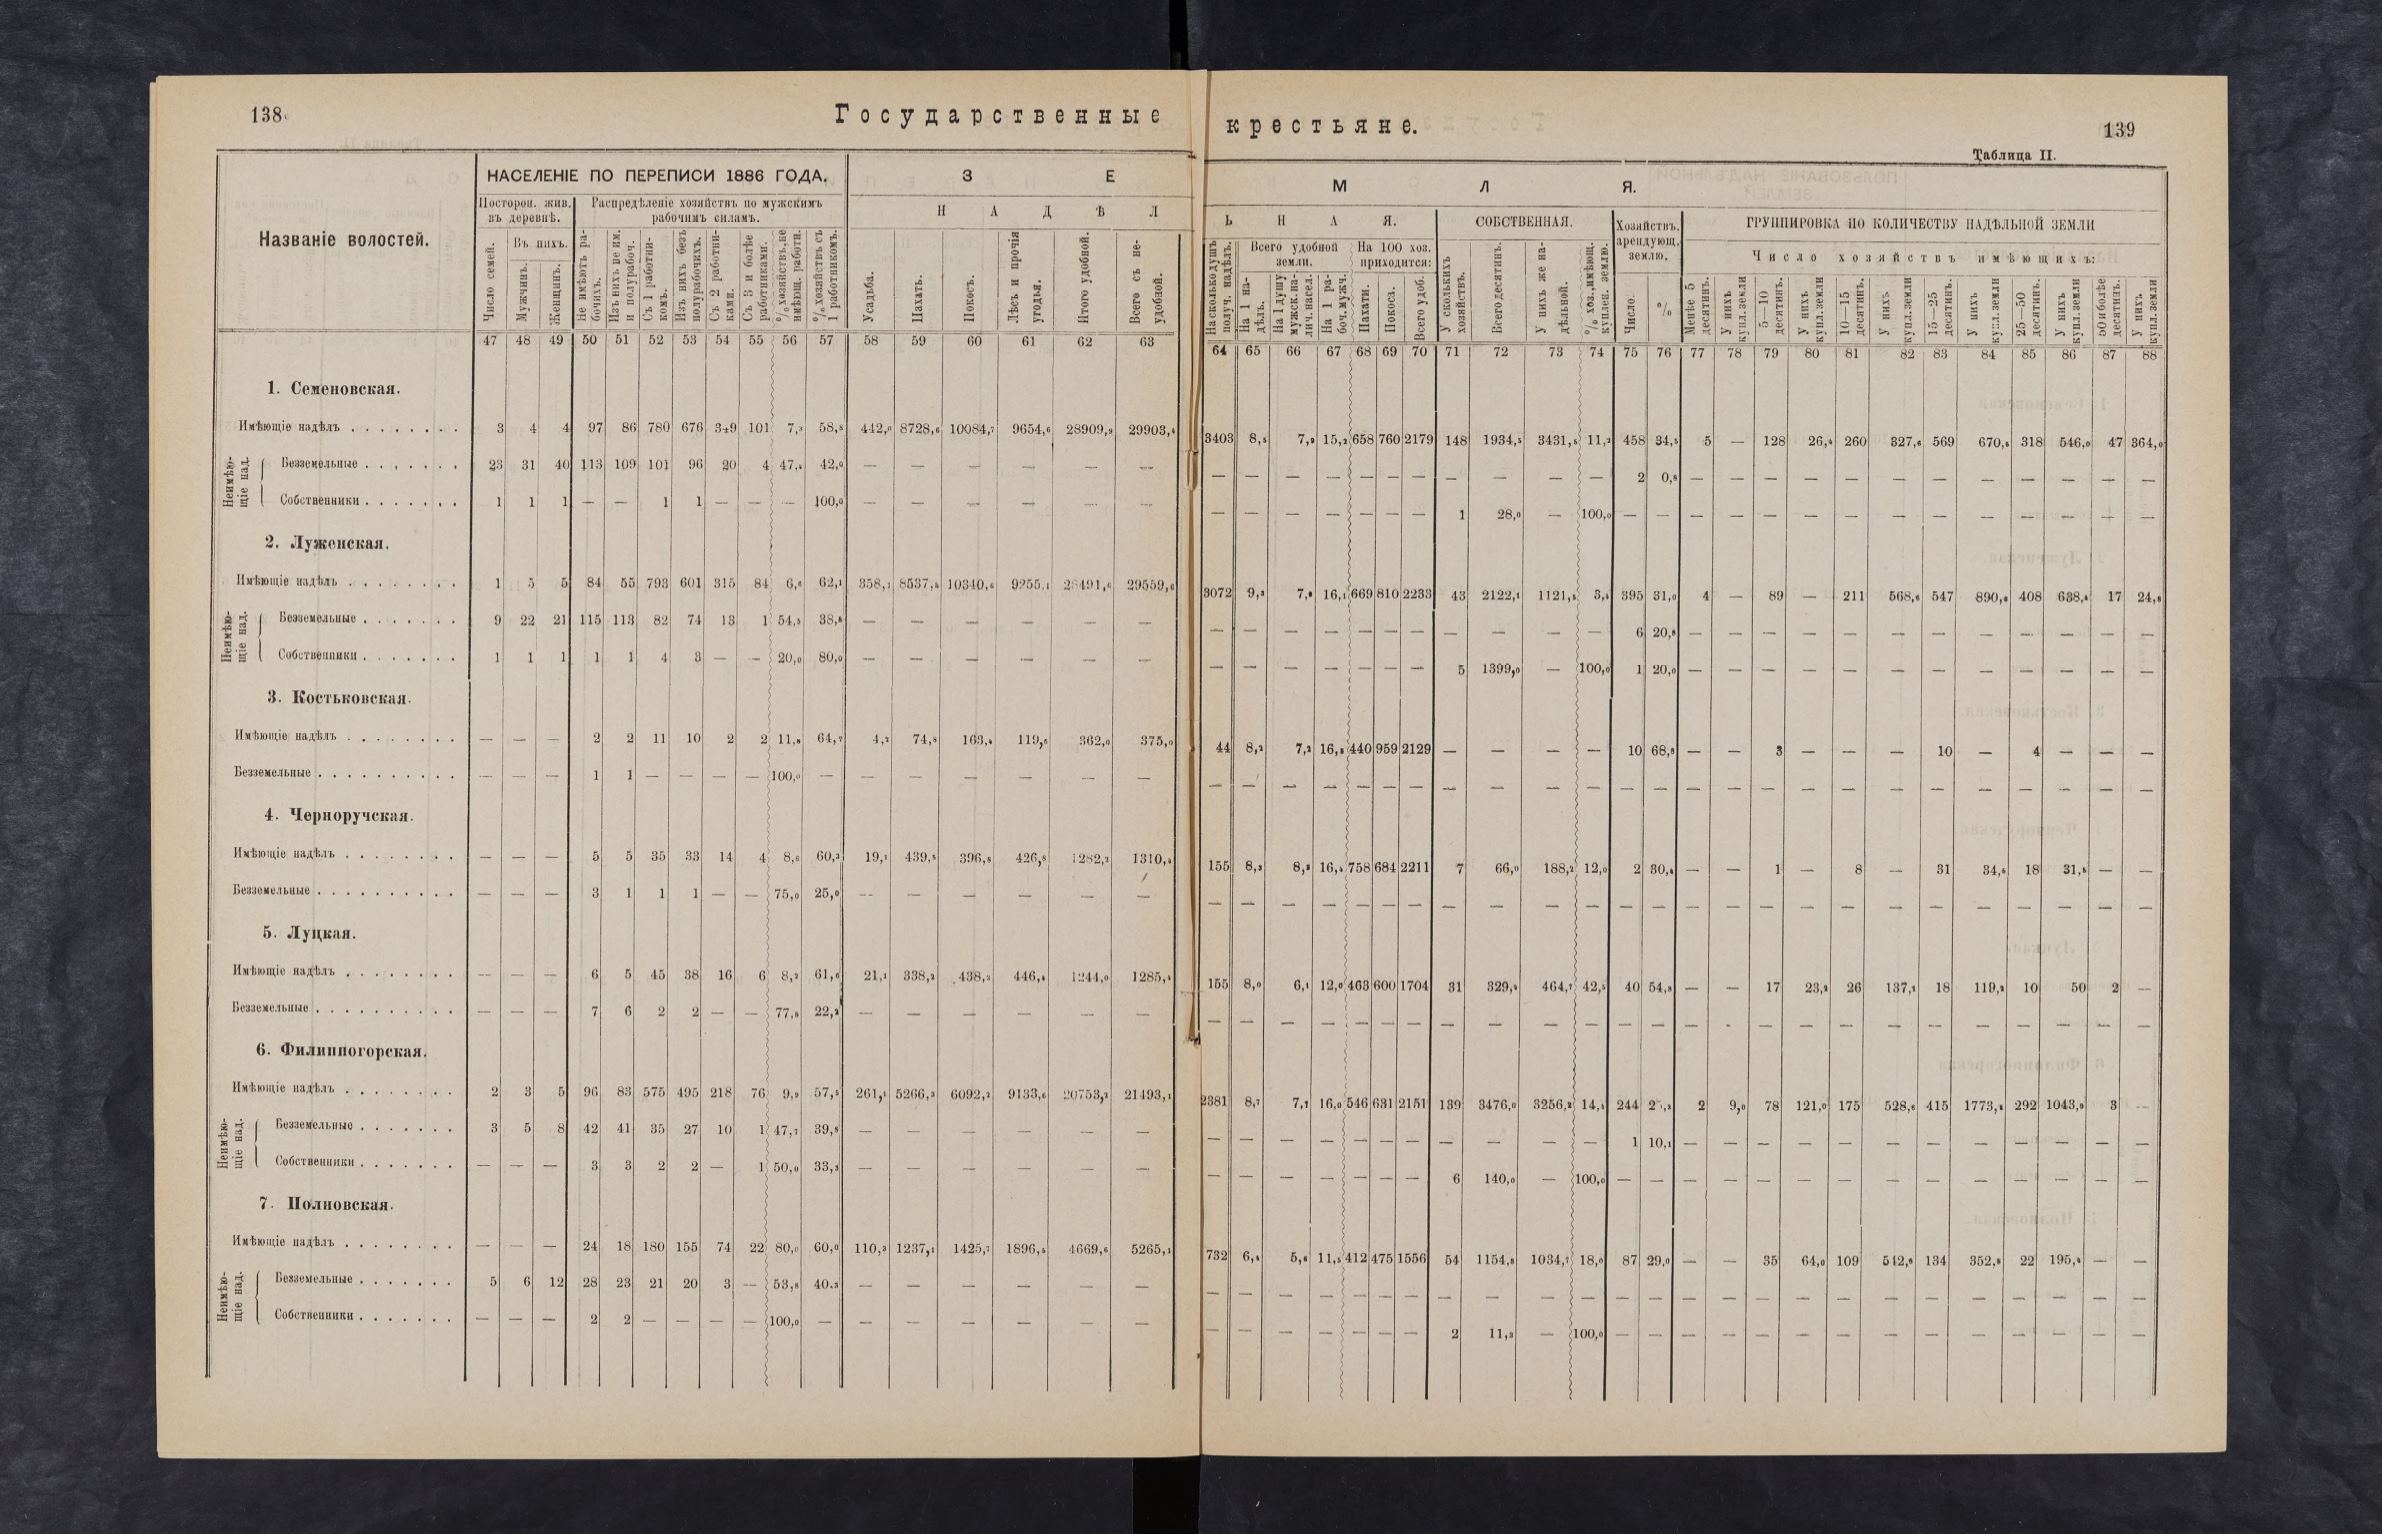 138
Государственные
крестьяне.
139
Таблица II.
Названіе волостей.
НАСЕЛЕНІЕ ПО ПЕРЕПИСИ 1886 ГОДА.
З Е М Л Я.
Посторон. жив. въ деревнѣ.
Распредѣленіе хозяйствъ по мужскимъ рабочимъ силамъ.
Н А Д Ѣ Л Ь Н А Я.
СОБСТВЕННАЯ.
Хозяйствъ, арендующ. землю.
ГРУППИРОВКА ПО КОЛИЧЕСТВУ НАДѢЛЬНОЙ ЗЕМЛИ
Число хозяйствъ имѣющихъ:
Число семей.
Въ нихъ.
Мужчинъ.
Женщинъ.
Не имѣютъ рабочихъ.
Изъ нихъ не им. и полурабоч.
Съ 1 работникомъ.
Изъ нихъ безъ полурабочихъ.
Съ 2 работниками.
Съ 3 и болѣе работниками.
% хозяйствъ, не имѣющ. работн.
% хозяйствъ съ 1 работникомъ.
Усадьба.
Пахать.
Покосъ.
Лѣсъ и прочія угодья.
Итого удобной.
Всего съ неудобной.
На сколько душъ получ. надѣлъ.
Всего удобной земли.
На 1 надѣлъ.
На 1 душу мужск. налич. насел.
На 1 рабоч. мужч.
На 100 хоз. приходится:
Пахати.
Покоса.
Всего удоб.
У сколькихъ хозяйствъ.
Всего десятинъ.
У нихъ же надѣльной.
% хоз., имѣющ. куплен. землю.
Число.
%
Менѣе 5 десятинъ.
У нихъ купл. земли
5—10 десятинъ.
У нихъ купл. земли
10—15 десятинъ.
У нихъ купл. земли
15—25 десятинъ.
У нихъ купл. земли
25—50 десятинъ.
У нихъ купл. земли
50 и болѣе десятинъ.
У нихъ купл. земли
47 48 49 50 51 52 53 54 55 56 57 58 59 60 61 62 63
64 65 66 67 68 69 70 71 72 73 74 75 76 77 78 79 80 81 82 83 84 85 86 87 88
1. Семеновская.
Имѣющіе надѣлъ . . . . . . . . 3 4 4 97 86 780 676 349 101 7,3 58,8 442,0 8728,6 10084,7 9654,6 28909,9 29903,4
3403 8,5 7,9 15,2 658 760 2179 148 1934,5 3431,8 11,2 458 34,5 5 — 128 26,4 260 327,6 569 670,8 318 546,0 47 364,0
Неимѣющіе над.
Безземельные . . . . . . . 23 31 40 113 109 101 96 20 4 47,4 42,0 — — — — — —
— — — — — — — — — — — 2 0,8 — — — — — — — — — — — —
Собственники . . . . . . . 1 1 1 — — 1 1 — — — 100,0 — — — — — —
— — — — — — — 1 28,0 — 100,0 — — — — — — — — — — — — — —
2. Луженская.
Имѣющіе надѣлъ . . . . . . . . 1 5 5 84 55 793 601 315 84 6,6 62,1 358,1 8537,8 10340,6 9255,1 28491,6 29559,6
3072 9,3 7,9 16,1 669 810 2233 43 2122,1 1121,8 3,4 395 31,0 4 — 89 — 211 568,6 547 890,8 408 638,4 17 24,8
Неимѣющіе над.
Безземельные . . . . . . . 9 22 21 115 113 82 74 13 1 54,5 38,8 — — — — — —
— — — — — — — — — — — 6 20,8 — — — — — — — — — — — —
Собственники . . . . . . . 1 1 1 1 1 4 3 — — 20,0 80,0 — — — — — —
— — — — — — — 5 1399,0 — 100,0 1 20,0 — — — — — — — — — — — —
3. Костьковская.
Имѣющіе надѣлъ . . . . . . . . — — — 2 2 11 10 2 2 11,8 64,7 4,2 74,8 163,4 119,6 362,0 375,0
44 8,2 7,2 16,5 440 959 2129 — — — — 10 68,8 — — 3 — — — 10 — 4 — — —
Безземельные . . . . . . . . . . — — — 1 1 — — — — 100,0 — — — — — — —
— — — — — — — — — — — — — — — — — — — — — — — —
4. Черноручская.
Имѣющіе надѣлъ . . . . . . . . — — — 5 5 35 33 14 4 8,6 60,3 19,1 439,5 396,8 426,8 1282,2 1310,4
155 8,3 8,3 16,4 758 684 2211 7 66,0 188,2 12,0 2 30,4 — — 1 — 8 — 31 34,5 18 31,5 — —
Безземельные . . . . . . . . . . — — — 3 1 1 1 — — 75,0 25,0 — — — — — —
— — — — — — — — — — — — — — — — — — — — — — — — —
5. Луцкая.
Имѣющіе надѣлъ . . . . . . . . — — — 6 5 45 38 16 6 8,2 61,6 21,1 338,2 438,3 446,4 1244,0 1285,4
155 8,0 6,1 12,0 463 600 1704 31 329,4 464,7 42,5 40 54,8 — — 17 23,2 26 137,1 18 119,2 10 50 2 —
Безземельные . . . . . . . . . . — — — 7 6 2 2 — — 77,8 22,2 — — — — — —
— — — — — — — — — — — — — — — — — — — — — — — — —
6. Филиппогорская.
Имѣющіе надѣлъ . . . . . . . . 2 3 5 96 83 575 495 218 76 9,9 57,5 261,1 5266,3 6092,2 9133,6 20753,2 21493,1
2381 8,7 7,7 16,0 546 631 2151 139 3476,0 3256,2 14,4 244 2 2 9,0 78 121,0 175 528,6 415 1773,8 292 1043,9 3 —
Неимѣющіе над.
Безземельные . . . . . . . 3 5 8 42 41 35 27 10 1 47,7 39,8 — — — — — —
— — — — — — — — — — — 1 10,1 — — — — — — — — — — — —
Собственники . . . . . . . — — — 3 3 2 2 — 1 50,0 33,3 — — — — — —
— — — — — — — 6 140,0 — 100,0 — — — — — — — — — — — — — —
7. Полновская.
Имѣющіе надѣлъ . . . . . . . . — — — 24 18 180 155 74 22 80,0 60,0 110,3 1237,1 1425,7 1896,5 4669,6 5265,1
732 6,4 5,6 11,5 412 475 1556 54 1154,8 1034,7 18,0 87 29,0 — — 35 64,0 109 542,9 134 352,8 22 195,4 — —
Неимѣющіе над.
Безземельные . . . . . . . 5 6 12 28 23 21 20 3 — 53,8 40,3 — — — — — —
— — — — — — — — — — — — — — — — — — — — — — — — —
Собственники . . . . . . . — — — 2 2 — — — — 100,0 — — — — — — —
— — — — — — — 2 11,3 — 100,0 — — — — — — — — — — — — — —